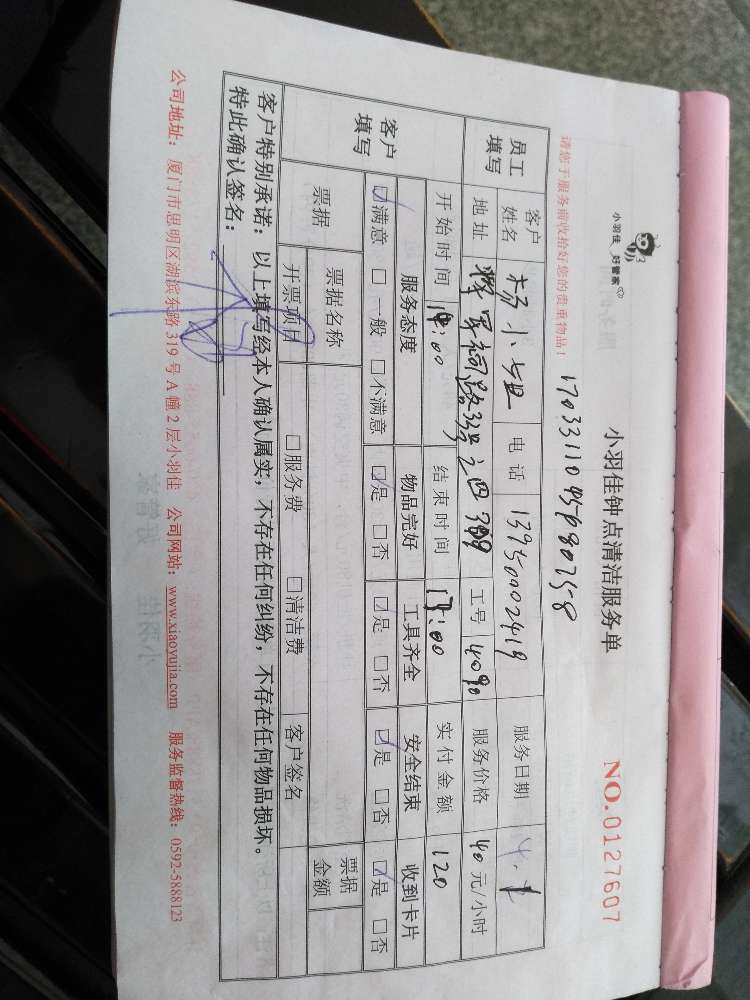 小羽佳 好管家
小羽佳钟点清洁服务单
NO.0127607
请您于服务前收拾好您的贵重物品！
员工填写 客户姓名 杨小姐 电话 13950002419 服务日期 4.1
地址 工号 4090 服务价格 40元/小时
开始时间 14:00 结束时间 17:00 实付金额 120
客户填写 服务态度 物品完好 工具齐全 安全结束 收到卡片
☑满意 □一般 □不满意 ☑是 □否 ☑是 □否 ☑是 □否 ☑是 □否
票据 票据名称 票据金额
开票项目 □服务费 □清洁费 客户签名
客户特别承诺：以上填写经本人确认属实，不存在任何纠纷，不存在任何物品损坏。
特此确认签名：
公司地址：厦门市思明区湖滨东路319号A幢2层小羽佳 公司网站：www.xiaoyujia.com 服务监督热线：0592-5888123